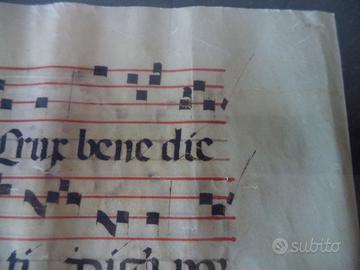 Crux bene dic
ti
subito